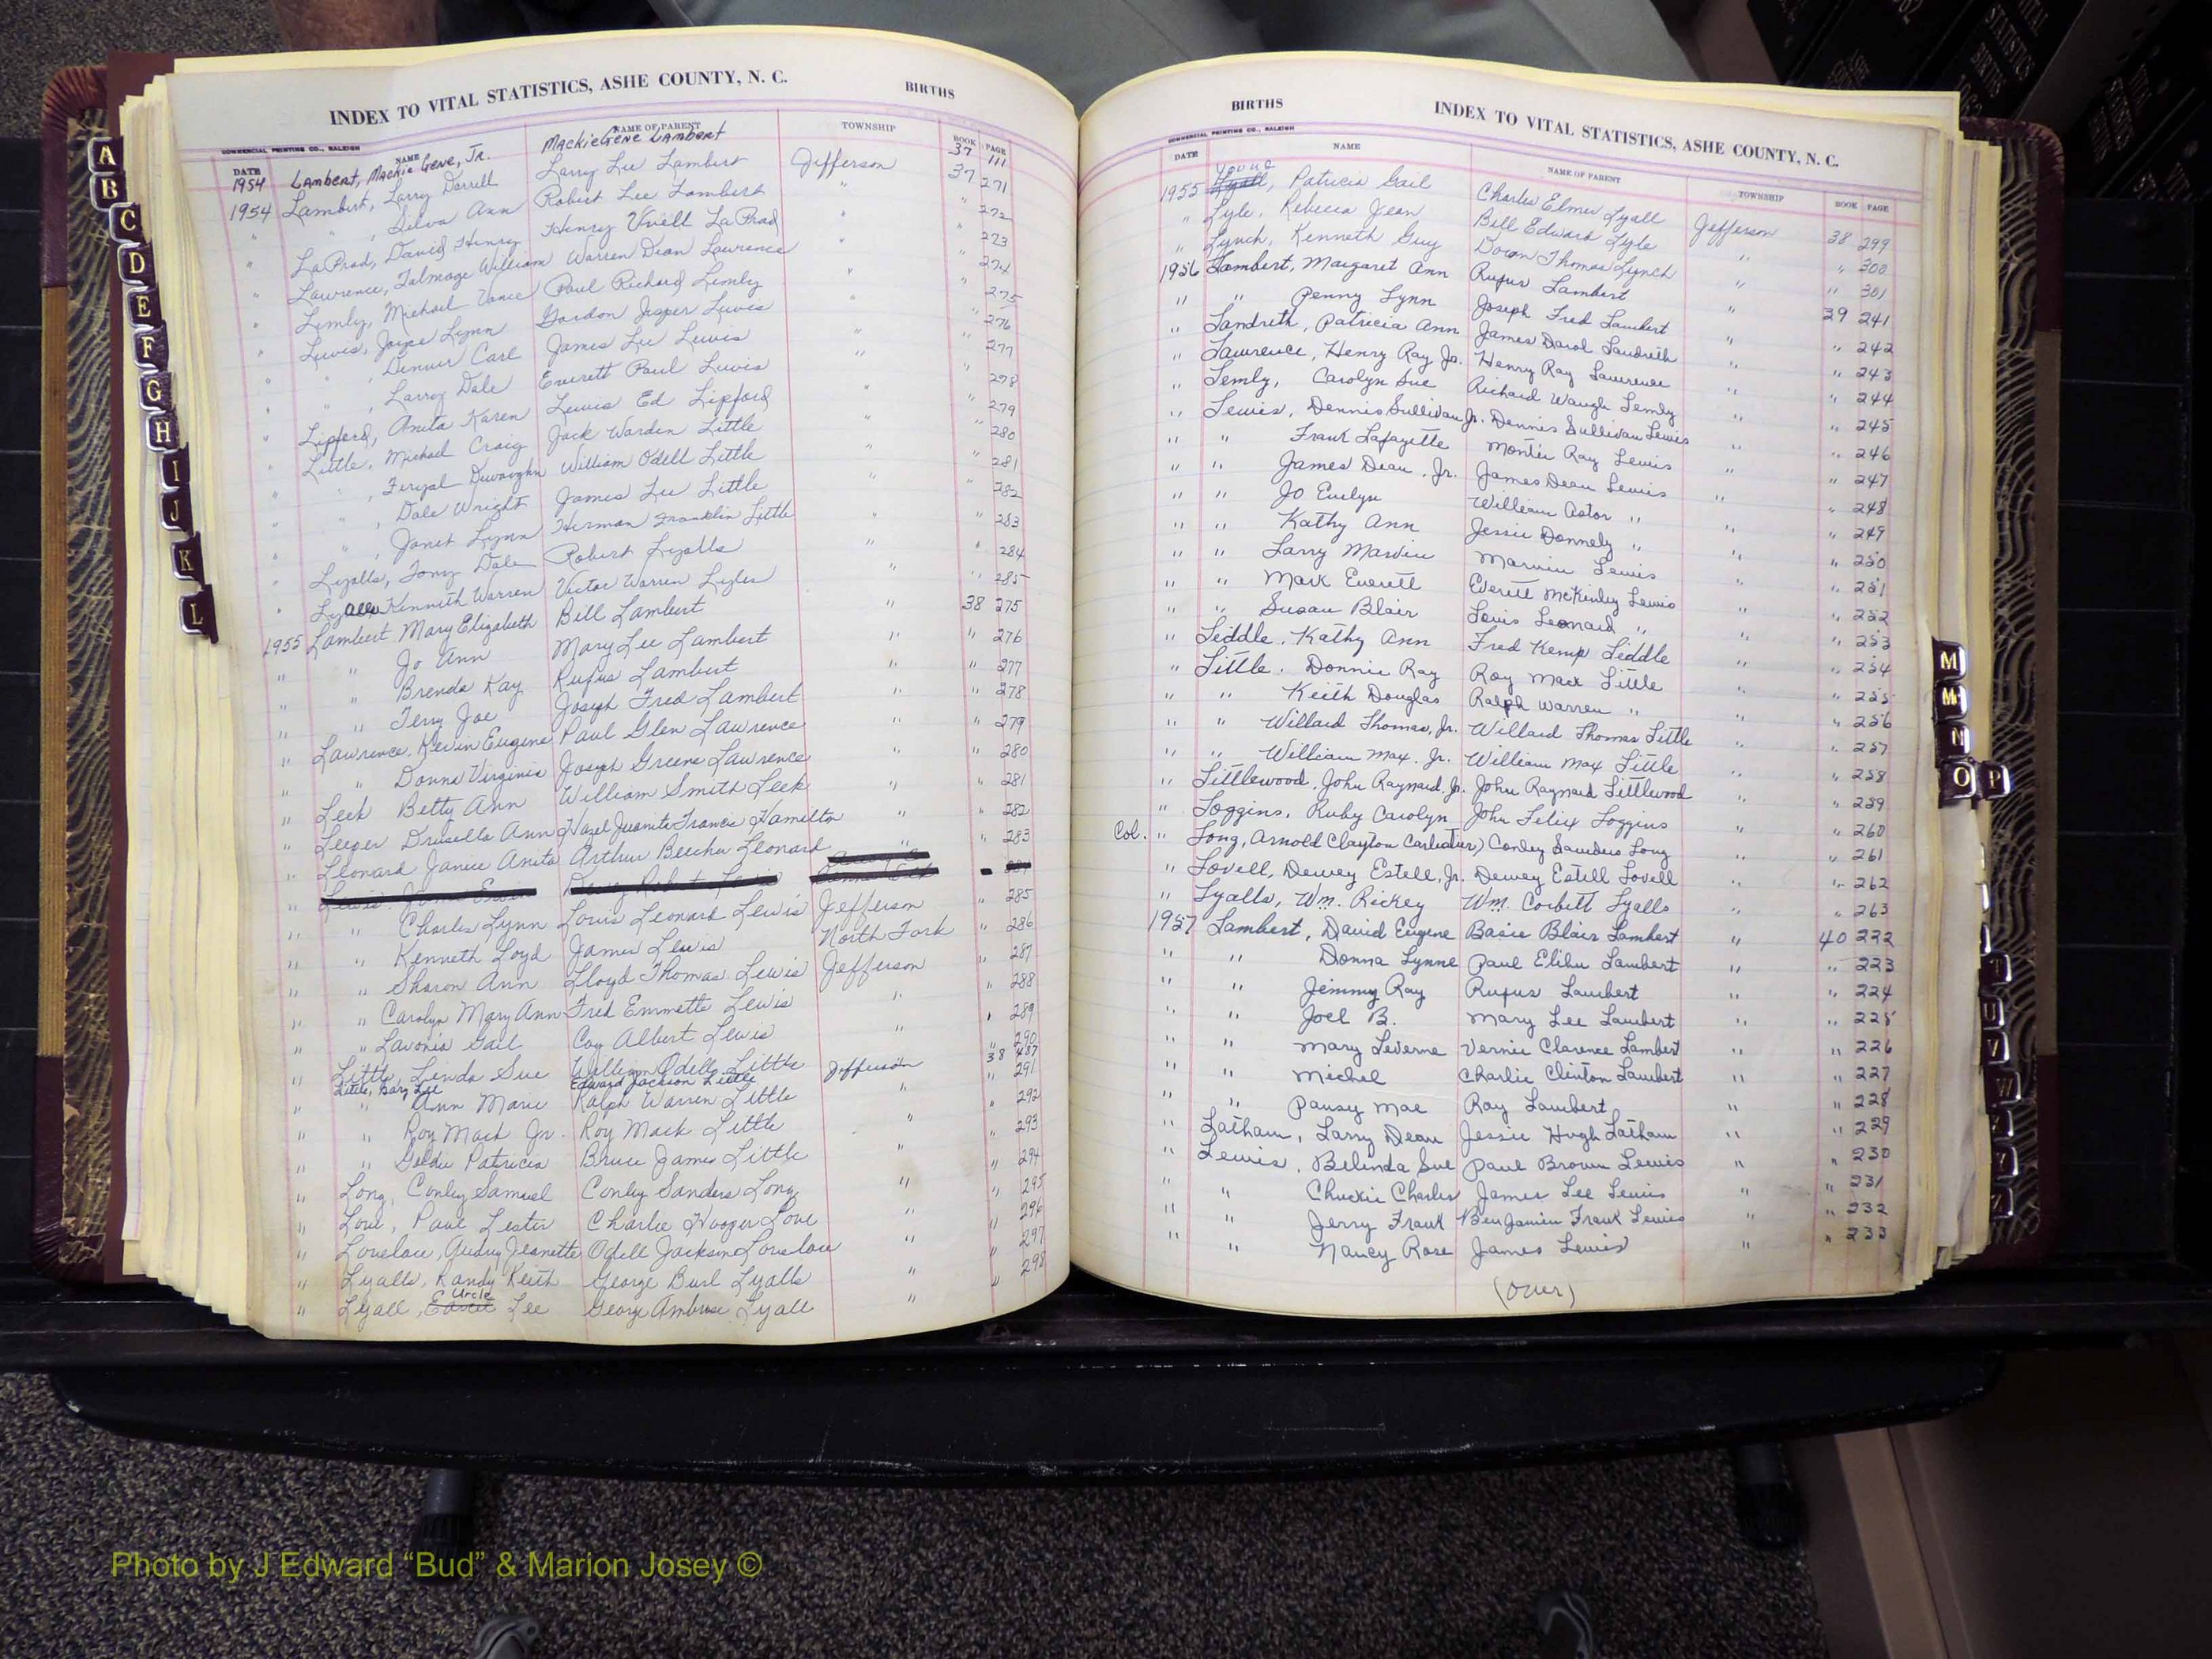 INDEX TO VITAL STATISTICS, ASHE COUNTY, N. C. BIRTHS
COMMERCIAL PRINTING CO., RALEIGH
DATE NAME NAME OF PARENT TOWNSHIP BOOK PAGE
1954 Lambert, Mackie Gene, Jr. Mackie Gene Lambert 37 111
1954 Lambert, Larry Darrell Larry Lee Lambert Jefferson 37 271
" " , Silva Ann Robert Lee Lambert " " 272
" LaPrad, David Henry Henry LaPrad " " 273
" Lawrence, Talmage William Warren Dean Lawrence " " 274
" Lemly, Michael Vance Paul Richard Lemly " " 275
" Lewis, Joyce Lynn Gordon Jasper Lewis " " 276
" " , Denver Carl James Lee Lewis " " 277
" " , Larry Dale Everett Paul Lewis " " 278
" Lipford, Anita Karen Lewis Ed Lipford " " 279
" Little, Michael Craig Jack Warden Little " " 280
" " , William Odell Little " " 281
" " , Dale Wright James Lee Little " " 282
" " , Janet Lynn Herman Franklin Little " " 283
" Lyalls, Tony Dale Robert Lyalls " " 284
" Kenneth Warren Victor Warren Lyles " " 285
1955 Lambert Mary Elizabeth Bill Lambert " 38 275
" " Jo Ann Mary Lee Lambert " " 276
" " Brenda Kay Rufus Lambert " " 277
" " Terry Joe Joseph Fred Lambert " " 278
" Lawrence, Kevin Eugene Paul Glen Lawrence " " 279
" " Donna Virginia Joseph Greene Lawrence " " 280
" Leek Betty Ann William Smith Leek " " 281
" Leeper Drusella Ann Hazel Juanita Francis Hamilton " " 282
" Leonard Janice Anita Arthur Beecher Leonard " " 283
" " Charles Lynn Louis Leonard Lewis Jefferson " 285
" " Kenneth Loyd James Lewis North Fork " 286
" " Sharon Ann Lloyd Thomas Lewis Jefferson " 287
" " Carolyn Mary Ann Fred Emmette Lewis " " 288
" " Lavonia Gail Coy Albert Lewis " " 289
" Little, Linda Sue William Odell Little Jefferson " 290
Little, Gary Lee Edward Jackson Little 38 487
" " Ann Marie Ralph Warren Little " " 291
" " Roy Mack Jr. Roy Mack Little " " 292
" " Goldie Patricia Bruce James Little " " 293
" Long, Conley Samuel Conley Sanders Long " " 294
" Love, Paul Lester Charlie Hooper Love " " 295
" Lovelace, Audry Jeanette Odell Jackson Lovelace " " 296
" Lyalls, Randy Keith George Burl Lyalls " " 297
" Lyall, Urcle Lee George Ambrose Lyall " " 298
BIRTHS INDEX TO VITAL STATISTICS, ASHE COUNTY, N. C.
COMMERCIAL PRINTING CO., RALEIGH
DATE NAME NAME OF PARENT TOWNSHIP BOOK PAGE
1955 Lyall, Patricia Gail Charles Elmer Lyall Jefferson 38 299
" Lyle, Rebecca Jean Bill Edward Lyle " " 300
" Lynch, Kenneth Guy Doran Thomas Lynch " " 301
1956 Lambert, Margaret Ann Rufus Lambert " 39 241
" " Penny Lynn Joseph Fred Lambert " " 242
" Landreth, Patricia Ann James Darol Landreth " " 243
" Lawrence, Henry Ray Jr. Henry Ray Lawrence " " 244
" Lemly, Carolyn Sue Richard Waugh Lemly " " 245
" Lewis, Dennis Sullivan Jr. Dennis Sullivan Lewis " " 246
" " Frank Lafayette Montie Ray Lewis " " 247
" " James Dean, Jr. James Dean Lewis " " 248
" " Jo Evelyn William Astor " " " 249
" " Kathy Ann Jessie Donnely " " " 250
" " Larry Marvin Marvin Lewis " " 251
" " Mark Everett Everett McKinley Lewis " " 252
" " Susan Blair Louis Leonard " " " 253
" Liddle, Kathy Ann Fred Kemp Liddle " " 254
" Little, Donnie Ray Roy Mack Little " " 255
" " Keith Douglas Ralph Warren " " " 256
" " Willard Thomas, Jr. Willard Thomas Little " " 257
" " William Max, Jr. William Max Little " " 258
" Littlewood, John Raynard, Jr. John Raynard Littlewood " " 259
" Loggins, Ruby Carolyn John Felix Loggins " " 260
Col. " Long, Arnold Clayton Conley Sanders Long " " 261
" Lovell, Dewey Estell, Jr. Dewey Estell Lovell " " 262
" Lyalls, Wm. Rickey Wm. Corbitt Lyalls " " 263
1957 Lambert, David Eugene Basie Blair Lambert " 40 222
" " Donna Lynne Paul Elihu Lambert " " 223
" " Jimmy Ray Rufus Lambert " 224
" " Joel B. Mary Lee Lambert " " 225
" " Mary Leverne Vernie Clarence Lambert " " 226
" " Michel Charlie Clinton Lambert " " 227
" " Pansy Mae Ray Lambert " 228
" Latham, Larry Dean Jessie Hugh Latham " " 229
" Lewis, Belinda Sue Paul Brown Lewis " " 230
" " Chuckie Charles James Lee Lewis " " 231
" " Jerry Frank Benjamin Frank Lewis " " 232
" " Nancy Rose James Lewis " " 233
(over)
A
B
C
D
E
F
G
H
I
J
K
L
M
Mc
N
O P
T
U
V
W
Y
Z
Photo by J Edward “Bud” & Marion Josey ©